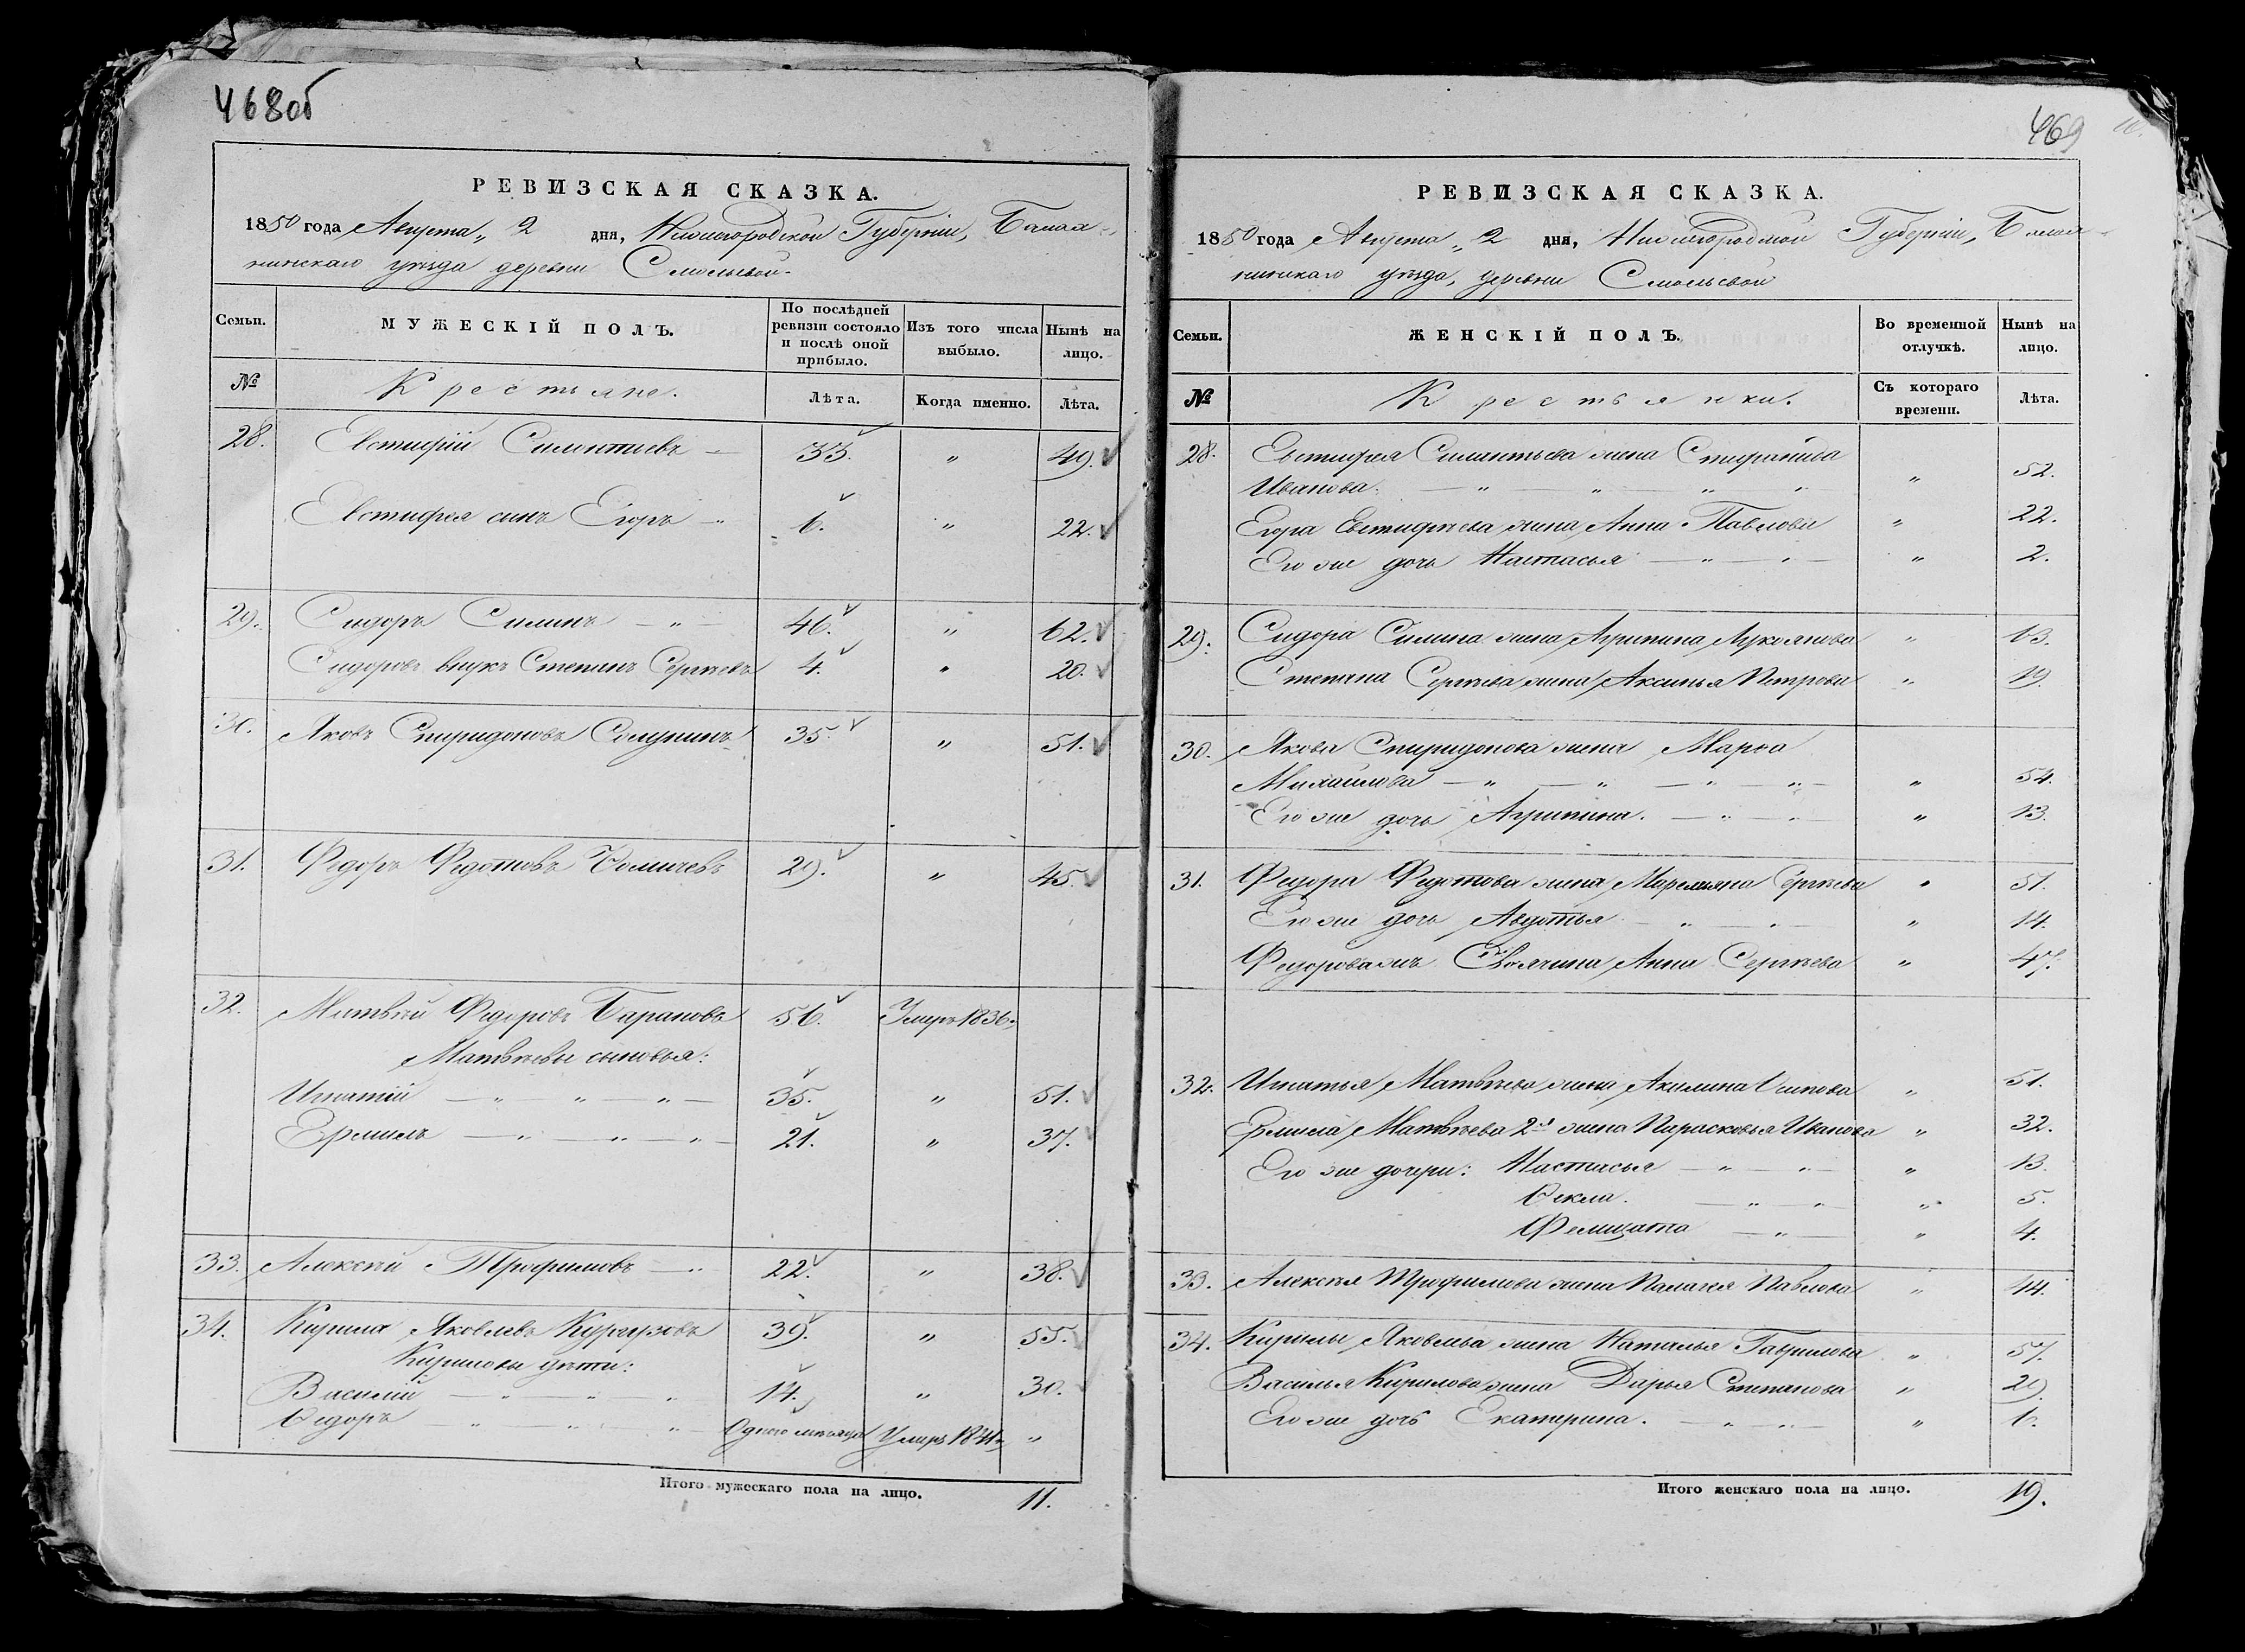 468об
РЕВИЗСКАЯ СКАЗКА.
1850 года Августа „ 2 дня, Нижегородской Губерніи, Балах-
нинскаго уѣзда деревни Смольевой
Семьи.
МУЖЕСКІЙ ПОЛЪ.
По послѣдней ревизіи состояло и послѣ оной прибыло.
Изъ того числа выбыло.
Нынѣ на лицо.
№
Крестьяне.
Лѣта.
Когда именно.
Лѣта.
28. Евстифій Силантьевъ 33. „ 49.
Евстифея сынъ Егоръ 6. „ 22.
29. Сидоръ Силинъ „ 46. „ 62.
Сидоровъ внукъ Степанъ Сергѣевъ 4. „ 20.
30. Яковъ Спиридоновъ 35. „ 51.
31. Федоръ Федотовъ 29. „ 45.
32. Матвѣй Федоровъ Барановъ 56. Умеръ 1836.
Матвѣевы сыновья:
Игнатій „ „ „ 35. „ 51.
Ермилъ „ „ „ 21. „ 37.
33. Алексѣй Трофимовъ 22. „ 38.
34. Кирила Яковлевъ 39. „ 55.
Кириловы дѣти:
Василій „ „ „ 14. „ 30.
Ѳедоръ „ „ „ Одного мѣсяца Умеръ 1841 „
Итого мужескаго пола на лицо. 11.
469
РЕВИЗСКАЯ СКАЗКА.
1850 года Августа „ 2 дня, Нижегородской Губерніи, Балах-
нинскаго уѣзда, деревни Смольевой
Семьи.
ЖЕНСКІЙ ПОЛЪ.
Во временной отлучкѣ.
Нынѣ на лицо.
№
Крестьянки.
Съ котораго времени.
Лѣта.
28. Евстифея Силантьева жена Стифанида
Иванова. „ „ „ „ „ 52.
Егора Евстифѣева жена Анна Павлова „ 22.
Его же дочь Настасья „ „ „ 2.
29. Сидора Силина жена Агрипина Лукоянова „ 63.
Степана Сергѣева жена Аксинья Петрова „ 19.
30. Якова Спиридонова жена Марѳа
Михайлова „ „ „ „ „ 54.
Его же дочь Агрипина. „ „ „ 13.
31. Федора Федотова жена Маремьяна Сергѣева „ 51.
Его же дочь Авдотья „ „ „ 14.
Федорова жъ Своячина Анна Сергѣева „ 47.
32. Игнатья Матвѣева жена Акилина Осипова „ 51.
Ермила Матвѣева 2я жена Парасковья Иванова „ 32.
Его же дочери: Настасья „ „ „ 13.
Ѳекла. „ „ „ 5.
Фелицата „ „ 4.
33. Алексѣя Трофимова жена Палагея Павлова „ 44.
34. Кирилы Яковлева жена Наталья Гаврилова „ 57.
Василья Кирилова жена Дарья Степанова „ 29.
Его же дочь Екатерина. „ „ „ 6.
Итого женскаго пола на лицо. 19.